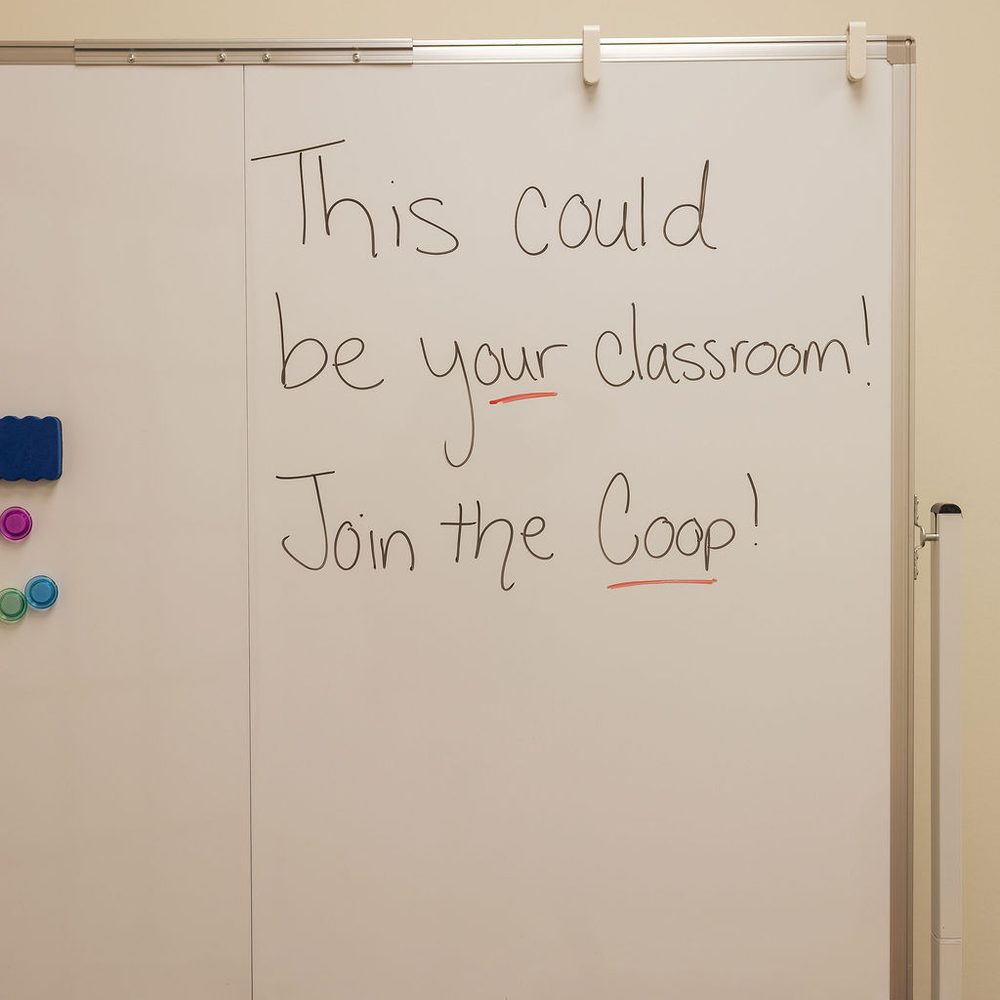 This could
be your classroom!
Join the Coop!